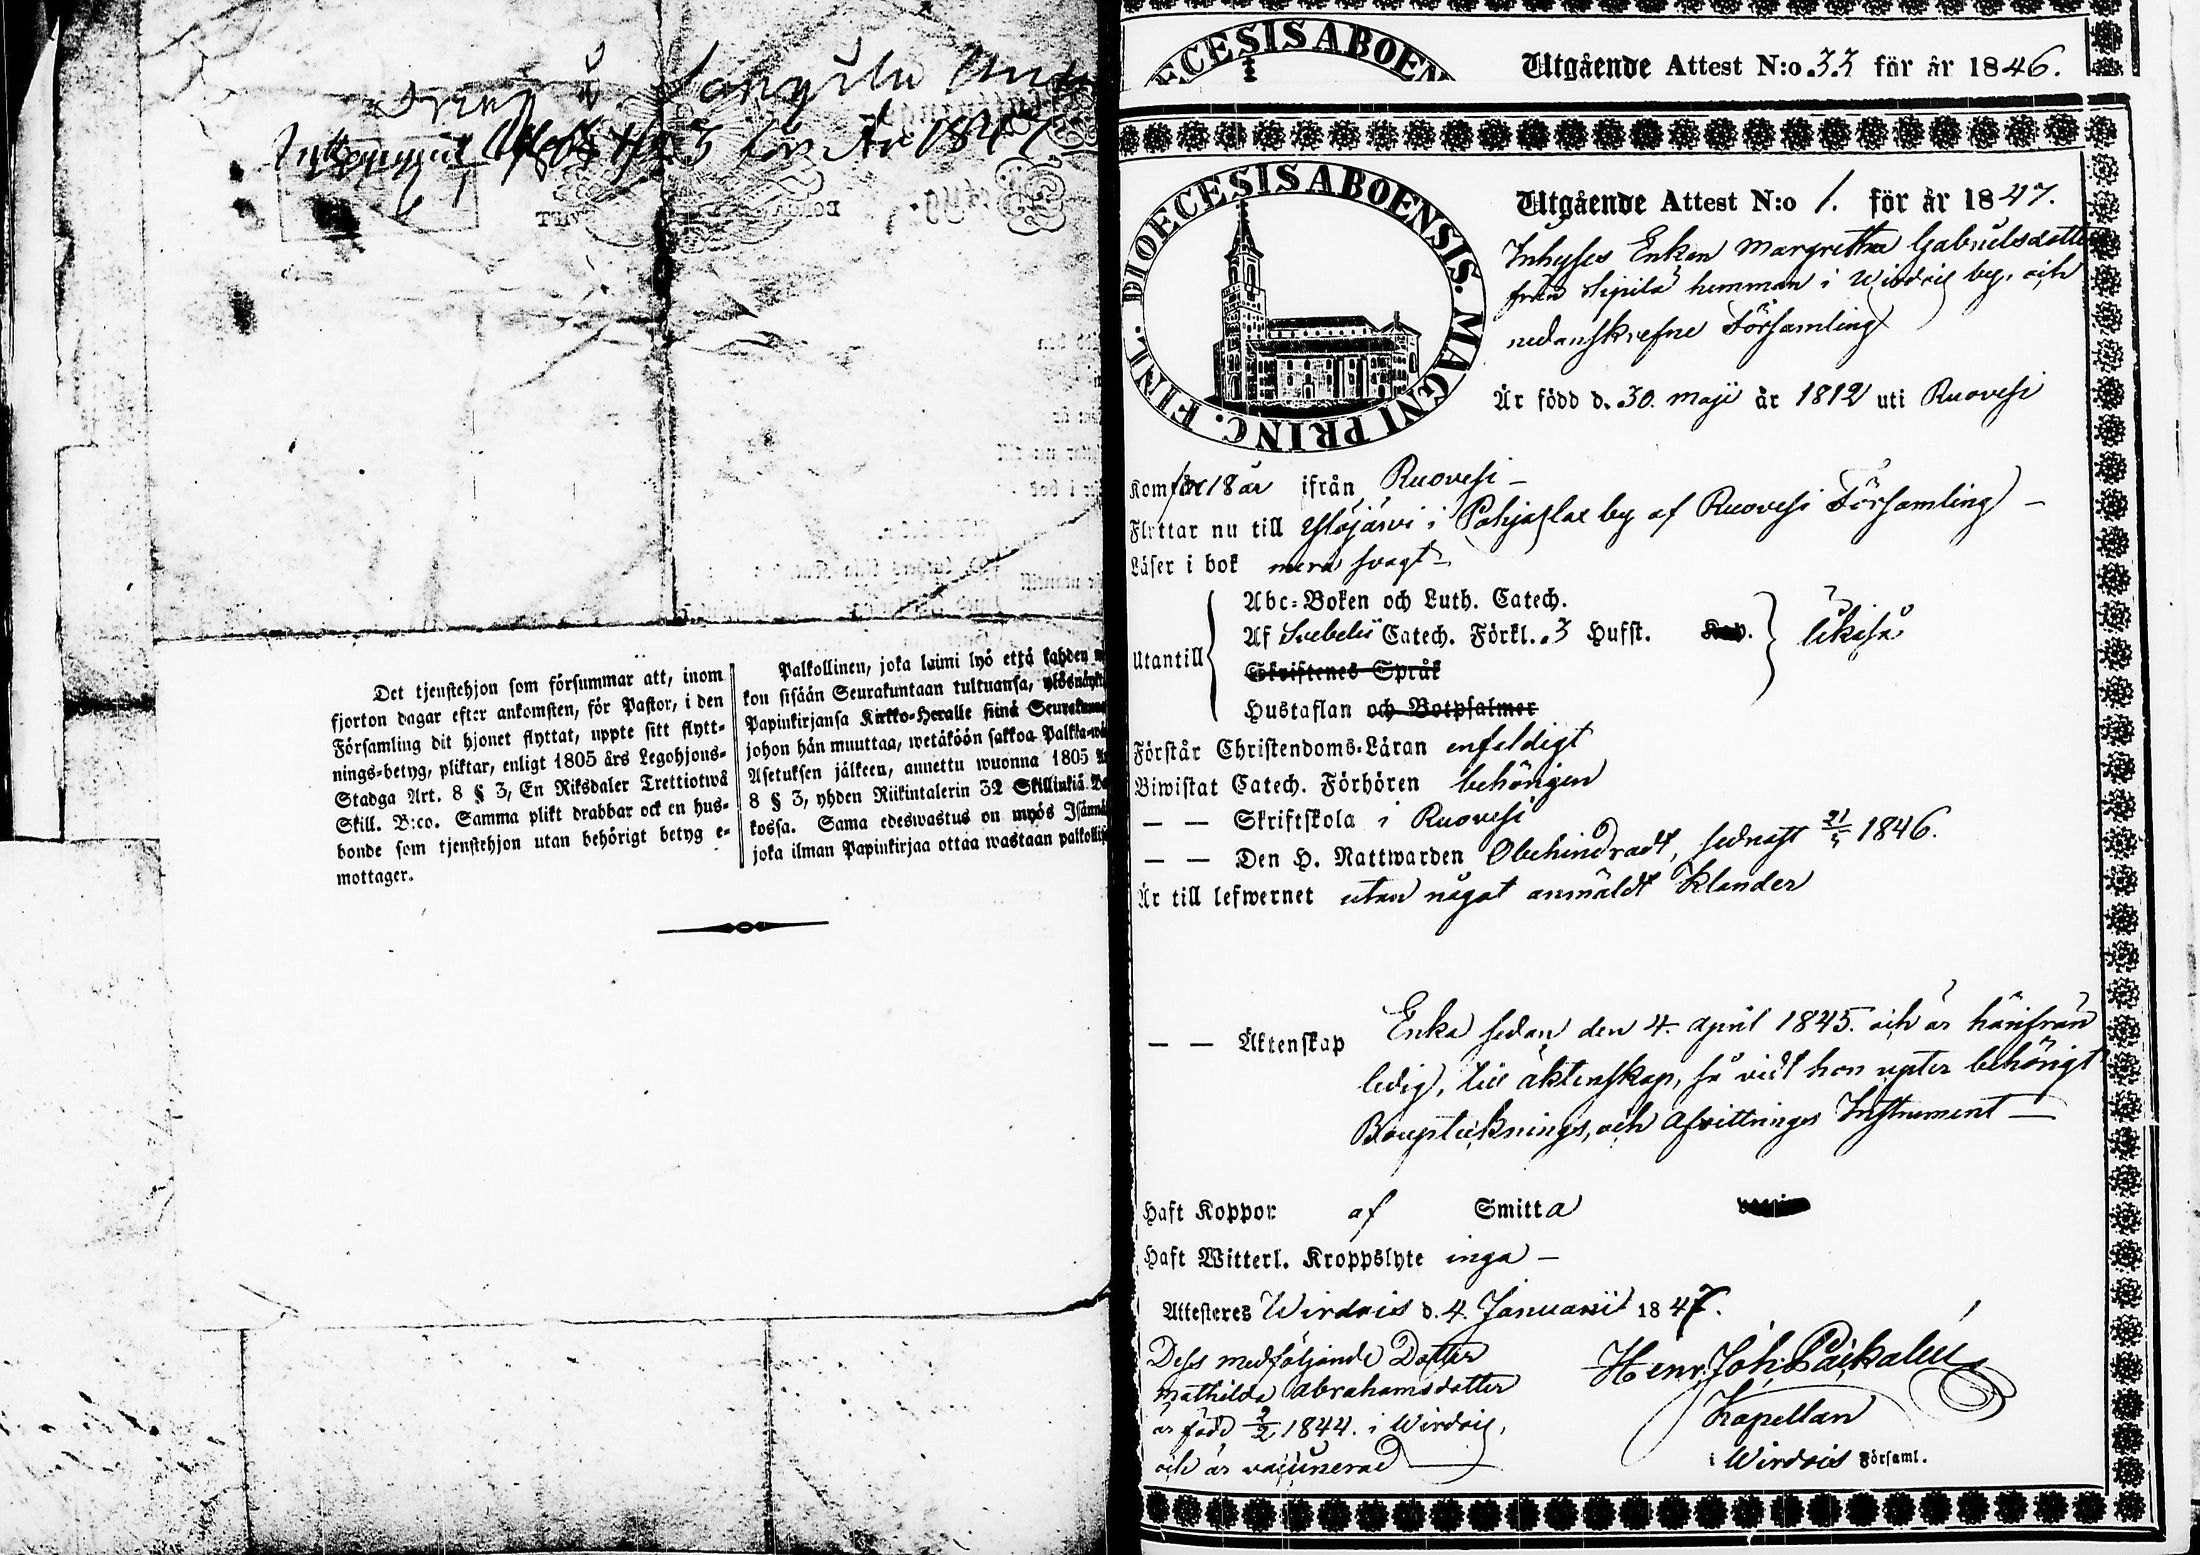 Inkommit Attest N:o 3 för År 1847
Det tjenstehjon som försummar att, inom
fjorton dagar efter ankomsten, för Pastor, i den
Församling dit hjonet flyttat, uppte sitt flytt-
nings-betyg, pliktar, enligt 1805 års Legohjons-
Stadga Art. 8 § 3, En Riksdaler Trettiotwå
Skill. B:co. Samma plikt drabbar ock en hus-
bonde som tjenstehjon utan behörigt betyg e-
mottager.
Palkollinen, joka laimi lyö että kahden
kon sisään Seurakuntaan tultuansa, ylösnäyt
Papinkirjansa Kirkko-Herralle siinä Seurakun
johon hän muuttaa, wetäköön sakkoa Palkka-wä
Asetuksen jälkeen, annettu wuonna 1805 A
8 § 3, yhden Riikintalerin 32 Skillinkiä Ba
kossa. Sama edeswastus on myös Isännä
joka ilman Papinkirjaa ottaa wastaan palkolli
ECESIS ABOEN
Utgående Attest N:o 33 för år 1846.
DIOECESIS ABOENSIS. MAGNI PRINC. FINL.
Utgående Attest N:o 1. för år 1847.
Inhyses Enkan Margretha Gabrielsdotter
från Sipilä hemman i Wirdois by, och
nedanskrefne Församling
Är född d. 30. Maji år 1812 uti Ruovesi
Kom för 18 år ifrån Ruovesi –
Flyttar nu till Ylöjärvi i Pohjaslax by af Ruovesi Församling –
Läser i bok mera svagt –
Utantill
Abc-Boken och Luth. Catech.
Af Svebelii Catech. Förkl. 3 Hufst. Kap.
Skriftenes Språk
Hustaflan och Botpsalmer
likaså
Förstår Christendoms-Läran enfaldigt
Biwistat Catech. Förhören behörigen
— — Skriftskola i Ruovesi
— — Den H. Nattwarden Obehindradt, sednast 21/5 1846.
Är till lefwernet utan något anmäldt klander
— — Äktenskap Enka sedan den 4. April 1845. och är härifrån
ledig, till äktenskap, så vidt hon upter behörigt
Bouptecknings, och Afvittrings Instrument —
Haft Koppor af Smitta
Haft Witterl. Kroppslyte inga –
Attesteres Wirdois d. 4. Januarii 1847.
Dess medföljande Dotter
Mathilda Abrahamsdotter
är född 2/2 1844. i Wirdois,
och är vaccinerad
Henr. Joh. Päckalén
Kapellan
i Wirdois Församl.